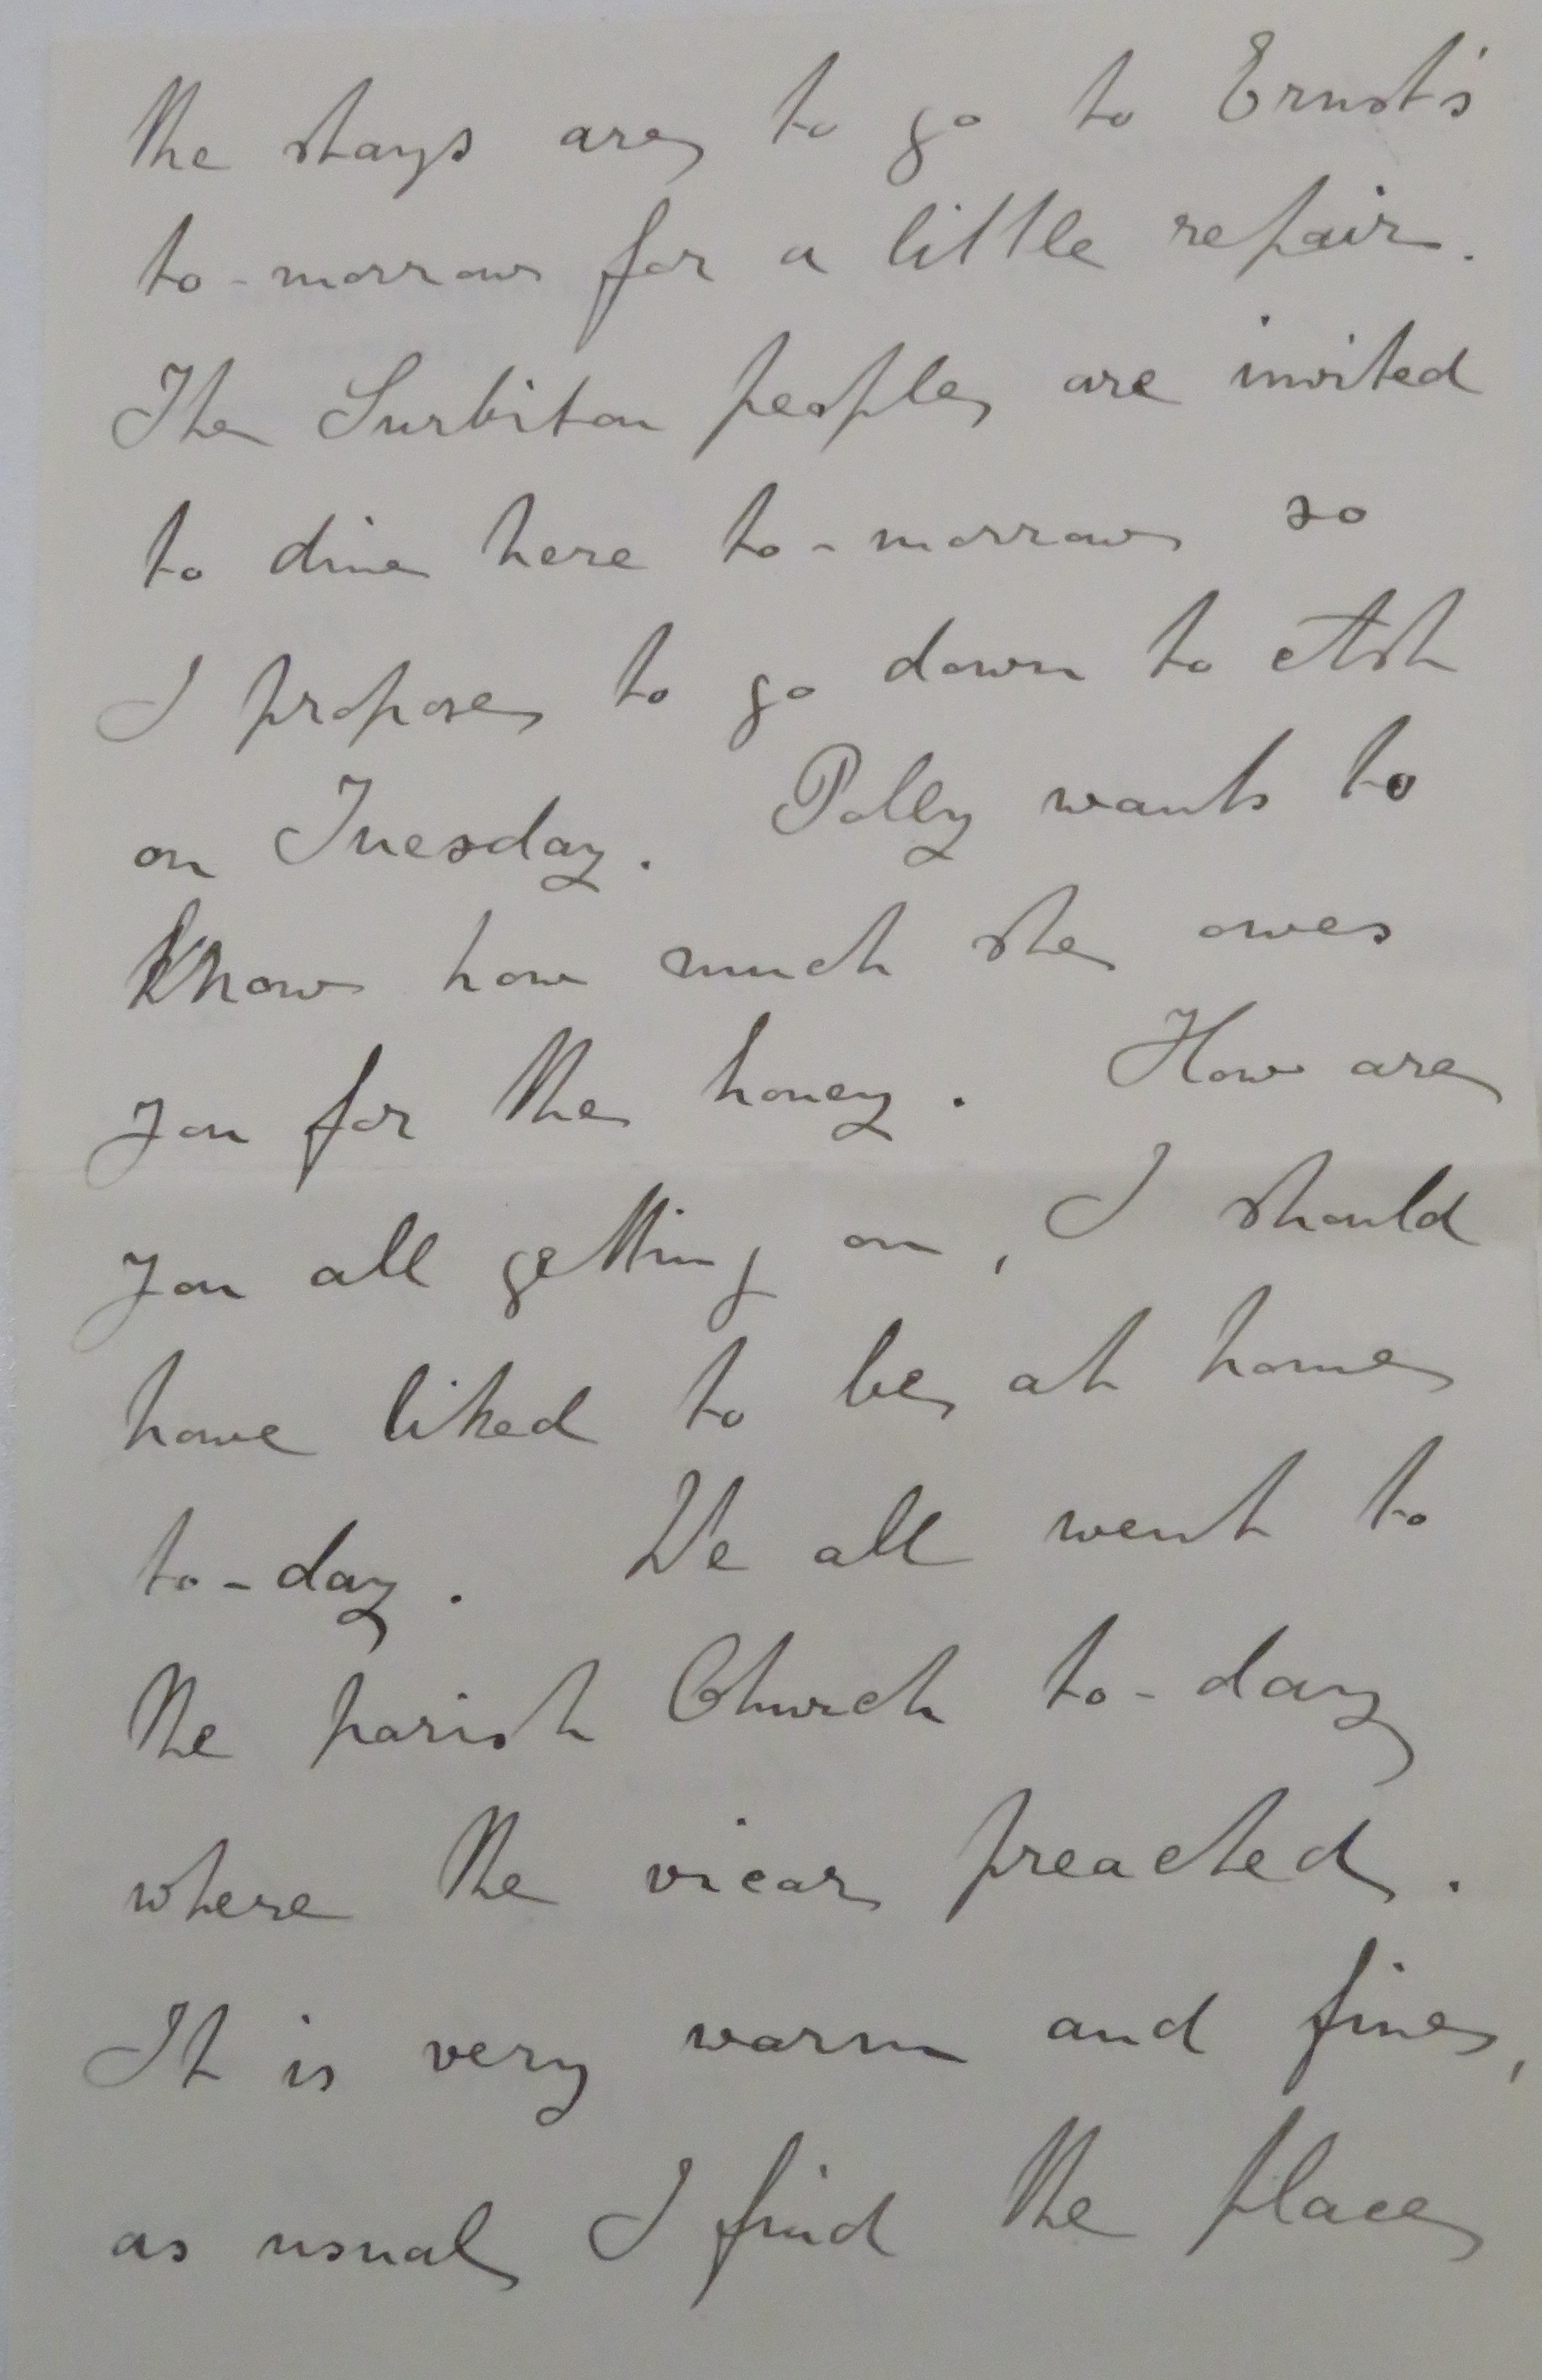 the stays are to go to Ernst's
to-morrow for a little repair.
The Surbiton people are invited
to dine here to-morrow so
I propose to go down to Ash
on Tuesday. Polly wants to
know how much she owes
you for the honey. How are
you all getting on, I should
have liked to be at home
to-day. We all went to
the parish Church to-day
where the vicar preached.
It is very warm and fine,
as usual I find the place